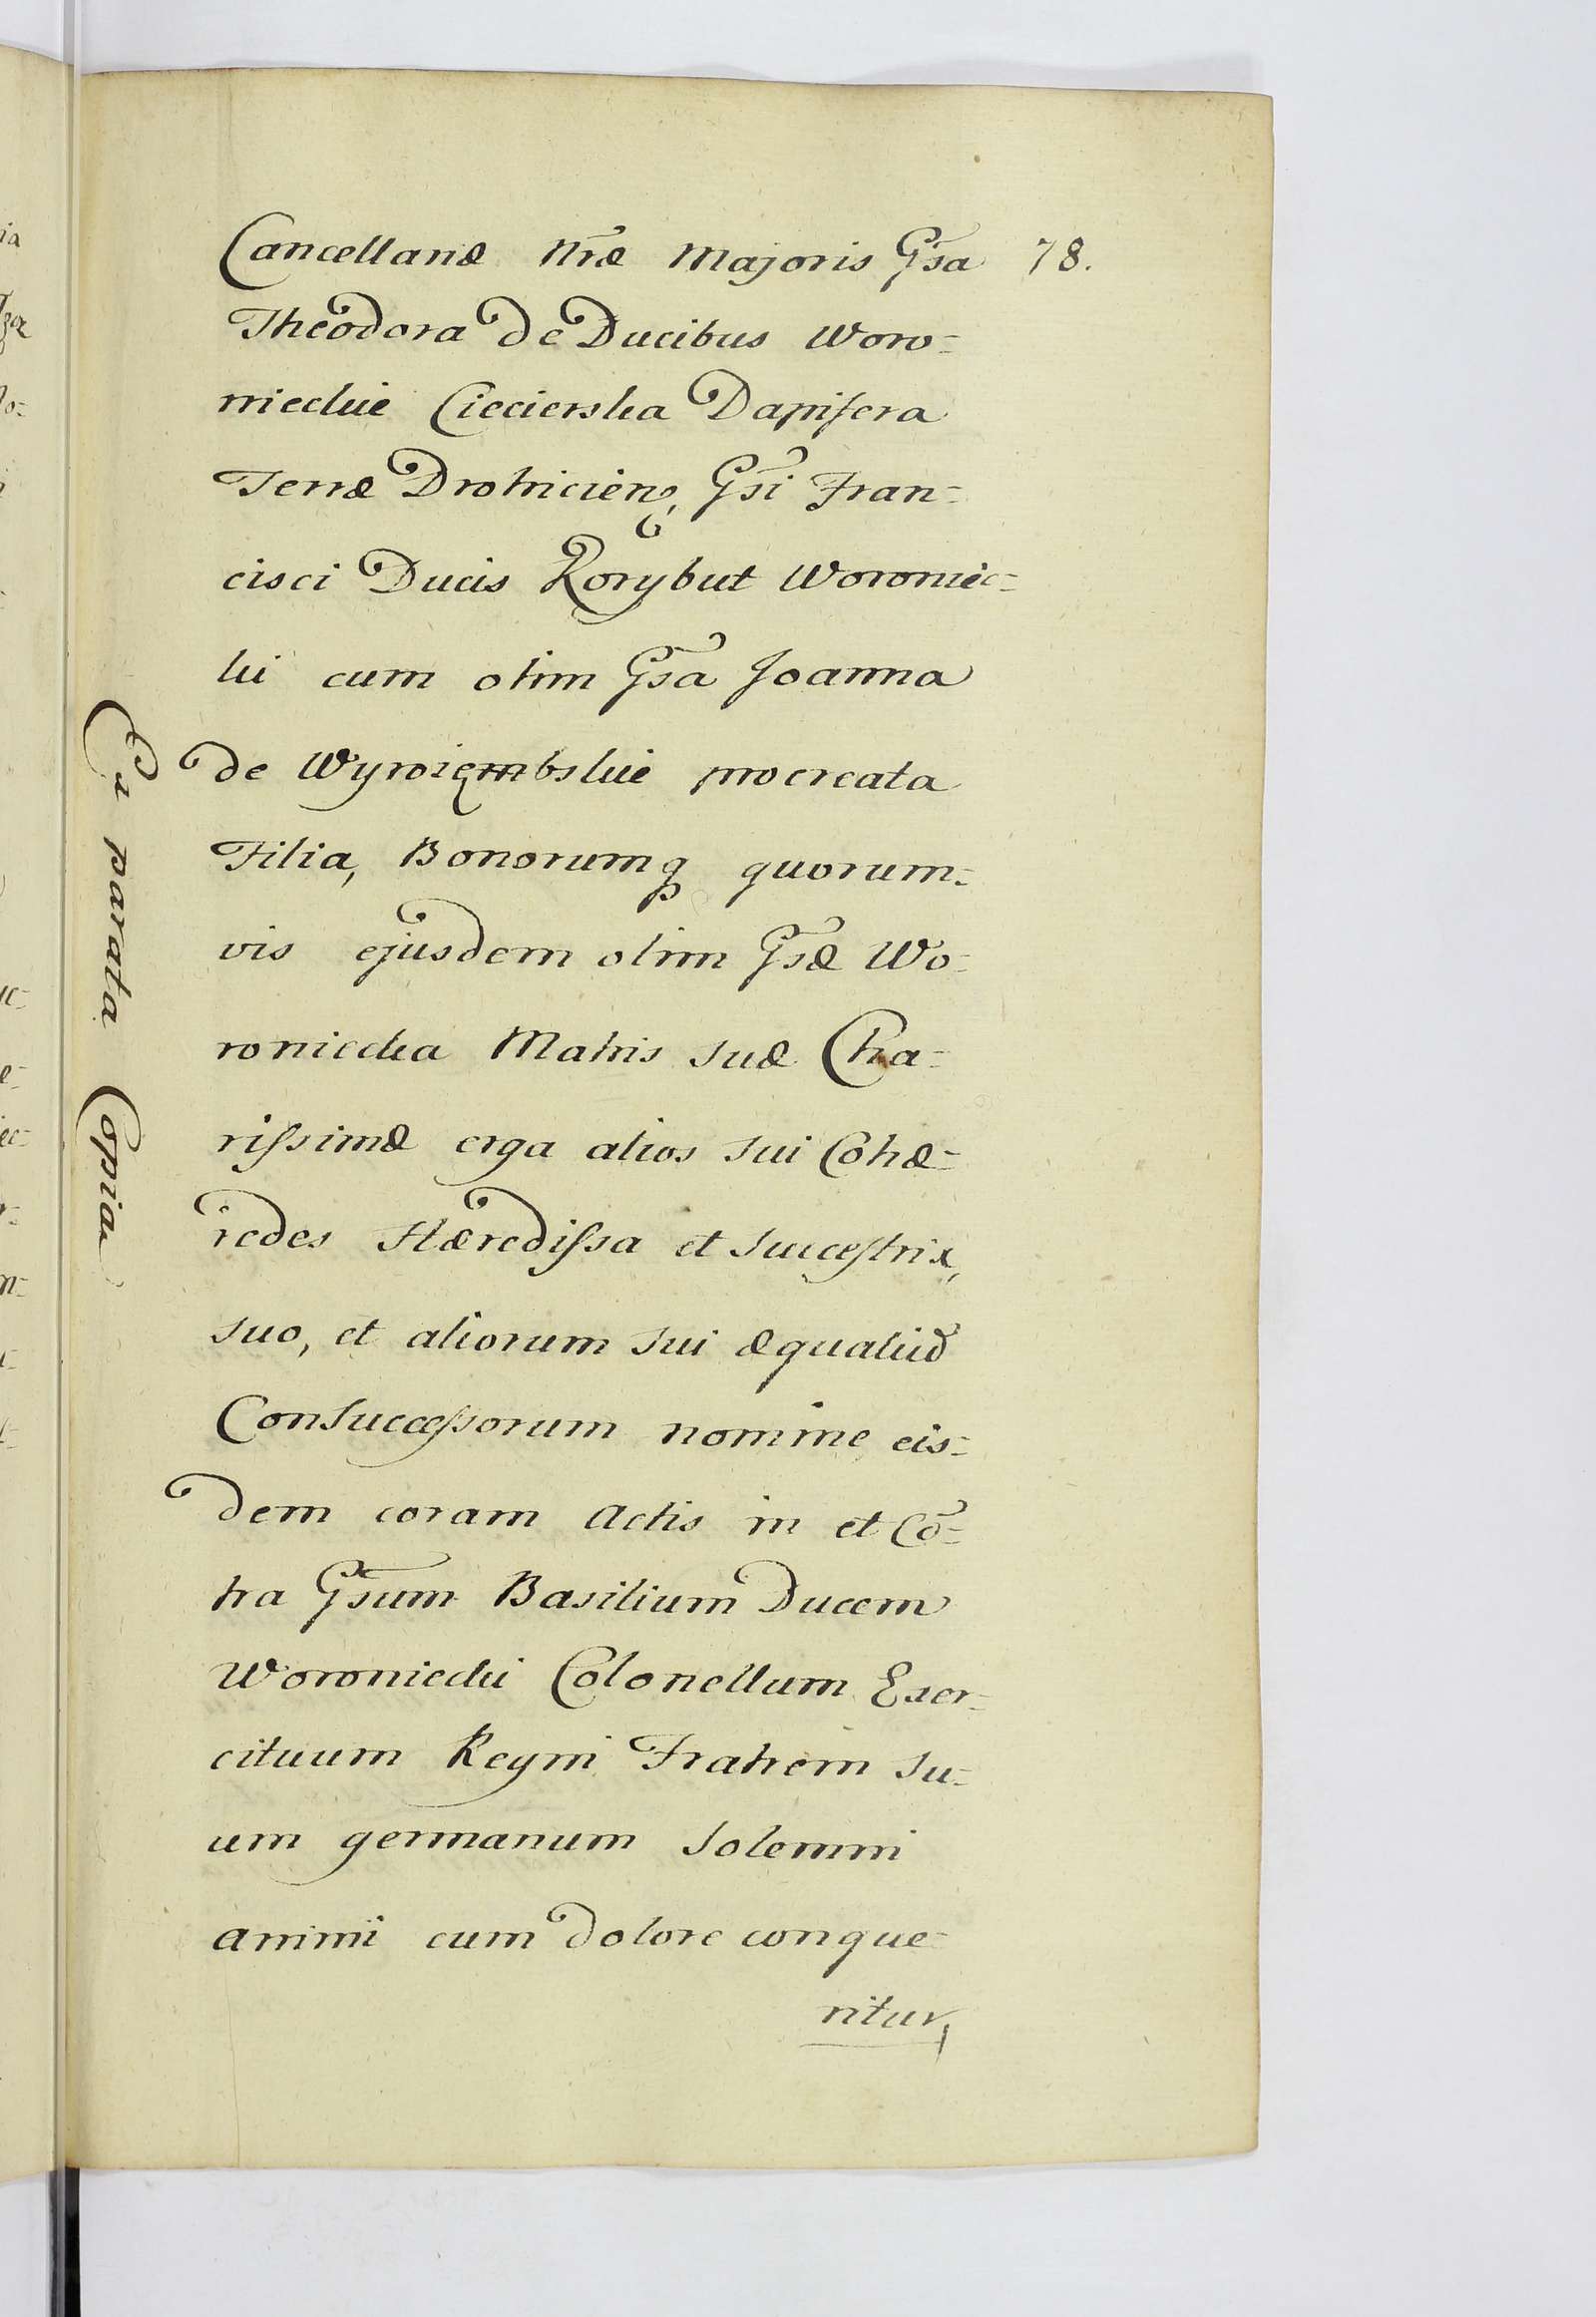 Cancellariæ Nr̃æ Majoris Gs̃a 78.
Theodora de Ducibus Woro=
nieckie Ciecierska Dapifera
Terræ Drohicien, Gs̃i Fran=
cisci Ducis Korybut Woroniec=
ki cum olim Gs̃a Joanna
de Wyroięmbskie procreata
Filia, Bonorumq quorum=
vis ejusdem olim Gs̃æ Wo=
roniecka Matris suæ Cha=
rissimæ erga alios sui Cohæ=
redes Hæredissa et Succestrix,
suo, et aliorum sui æqualiũ
Consuccessorum nomine eis=
dem coram Actis in et Cõ=
tra Gs̃um Basilium Ducem
Woroniecki Colonellum Exer=
cituum Regni Fratrem su=
um germanum solemni
animi cum dolore conque=
ritur,
parata Copia